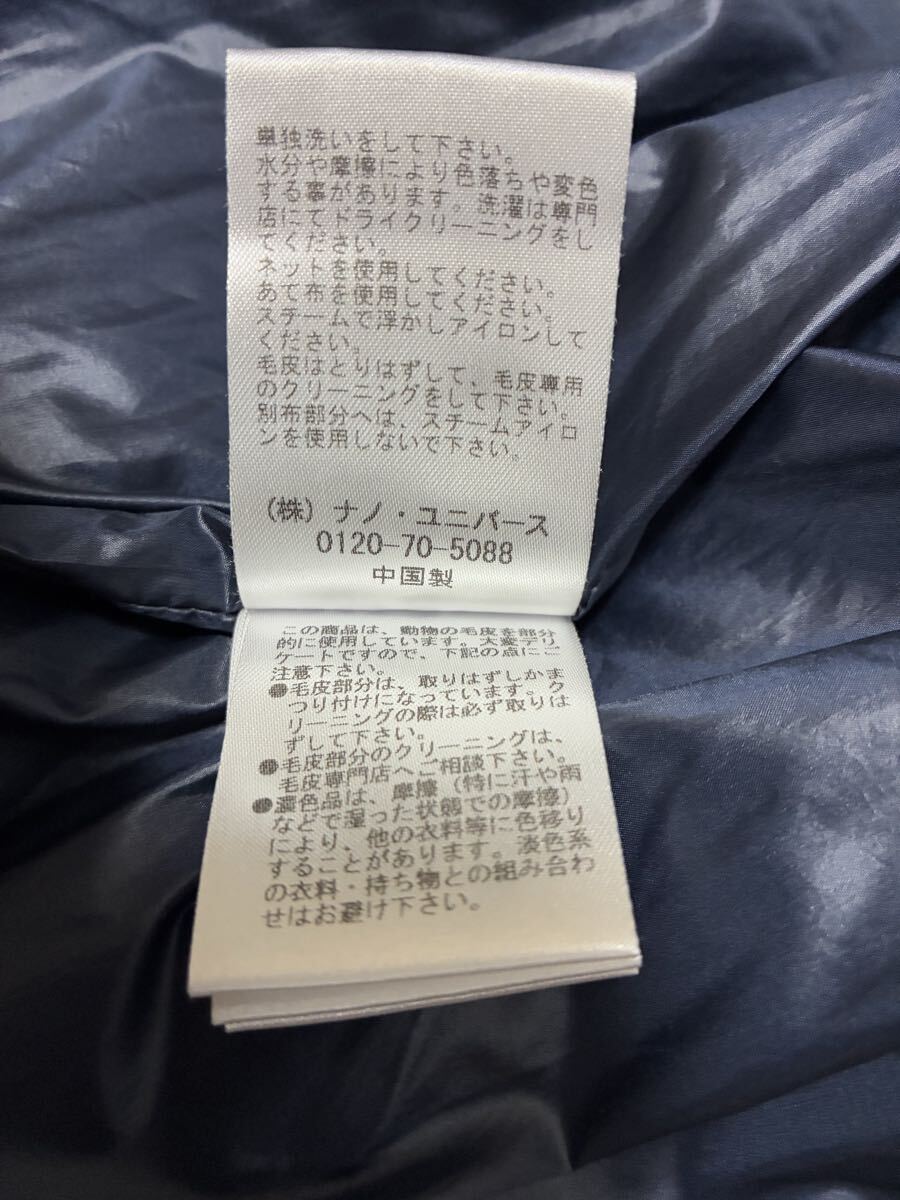 単独洗いをして下さい。
水分や摩擦により色落ちや変色
する事があります。洗濯は専門
店にてドライクリーニングをし
てください。
ネットを使用してください。
あて布を使用してください。
スチームで浮かしアイロンして
ください。
毛皮はとりはずして、毛皮専用
のクリーニングをして下さい。
別布部分へは、スチームアイロ
ンを使用しないで下さい。
(株) ナノ・ユニバース
0120-70-5088
中国製
この商品は、動物の毛皮を部分
的に使用しています。大変デリ
ケートですので、下記の点にご
注意下さい。
●毛皮部分は、取りはずしかま
つり付けになっています。ク
リーニングの際は必ず取りは
ずして下さい。
●毛皮部分のクリーニングは、
毛皮専門店へご相談下さい。
●濃色品は、摩擦(特に汗や雨
などで湿った状態での摩擦)
により、他の衣料等に色移り
することがあります。淡色系
の衣料・持ち物との組み合わ
せはお避け下さい。